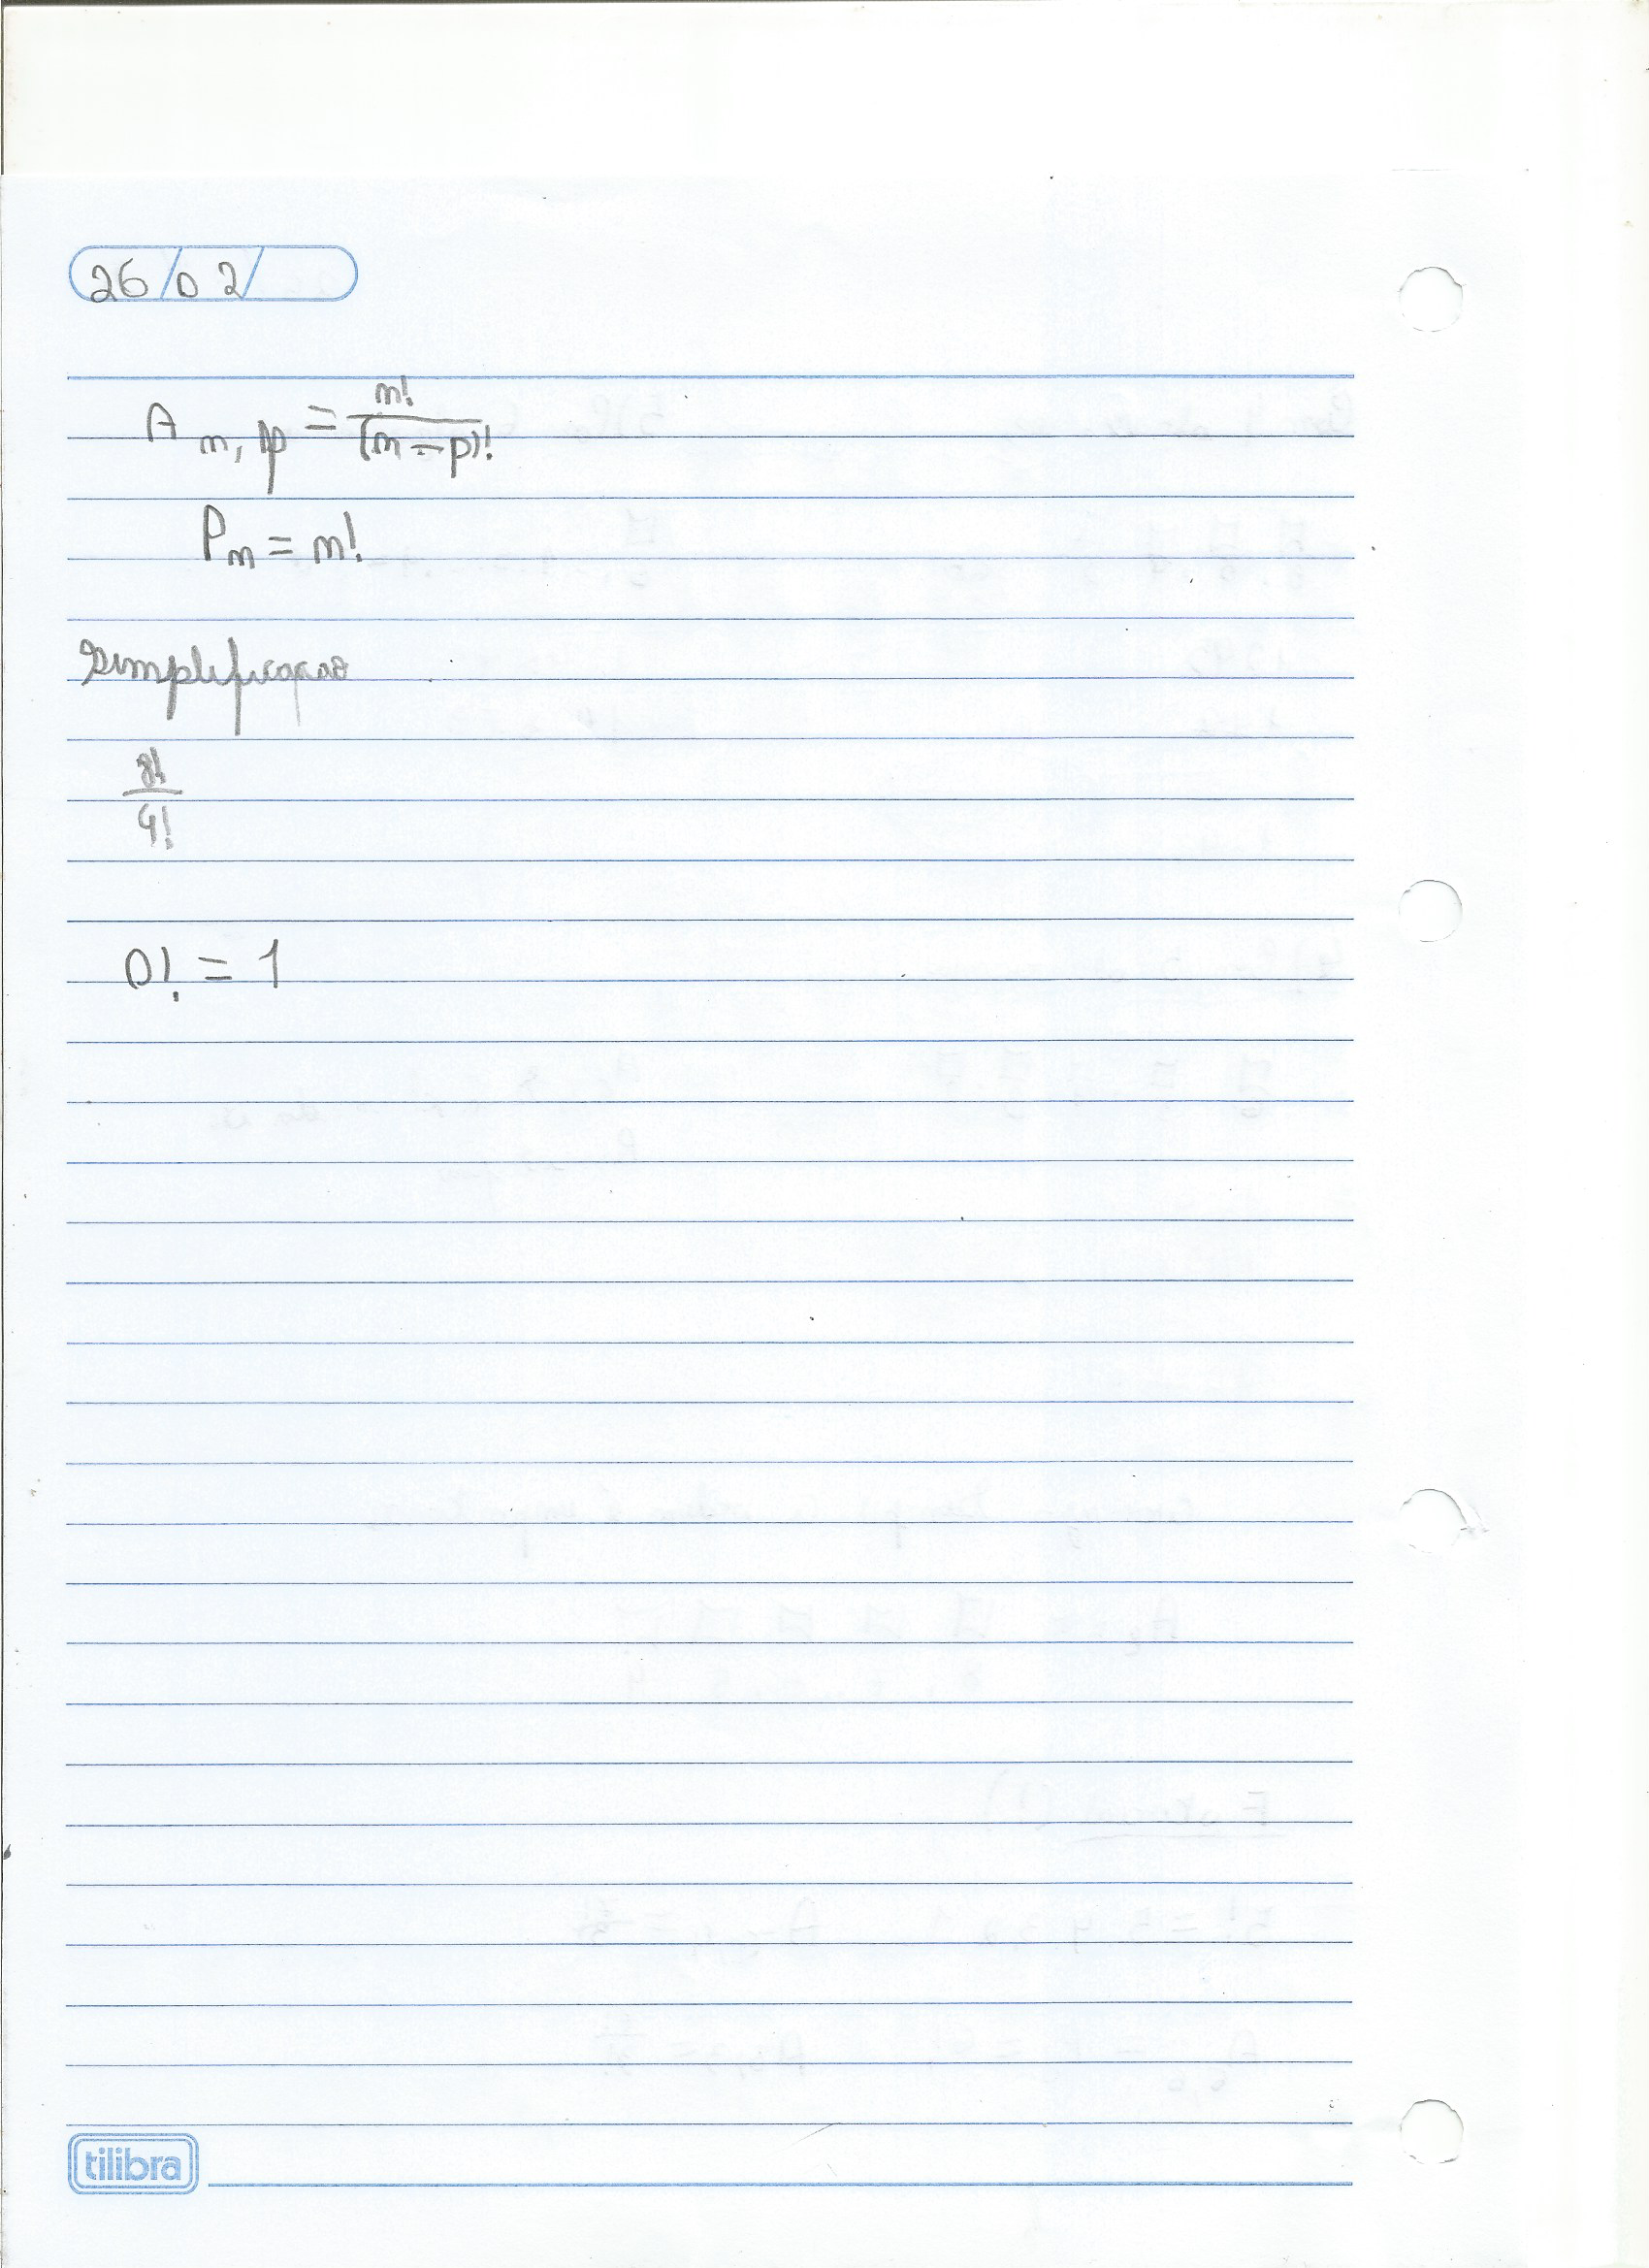 26/02/
A n,p = n!/(n-p)!
Pn = n!
Simplificação
8!/4!
0! = 1
tilibra